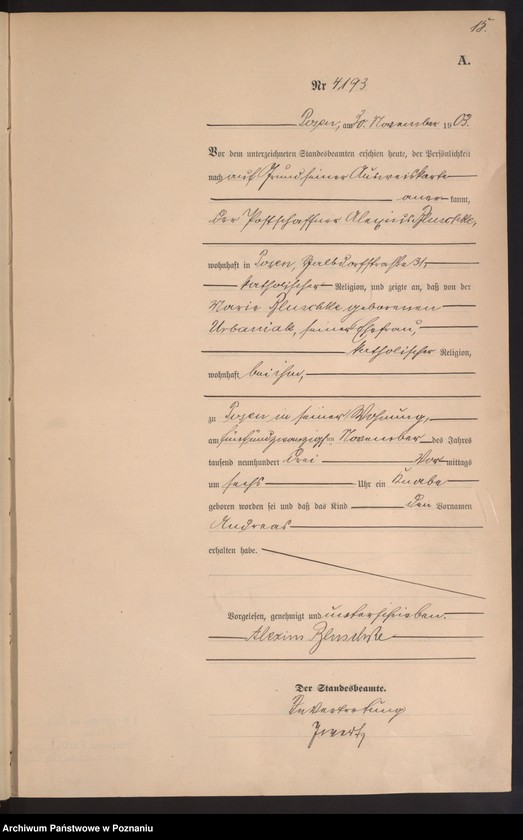 15.
A.
Nr 4193
Posen, am 30. November 1903.
Vor dem unterzeichneten Standesbeamten erschien heute, der Persönlichkeit
nach auf Grund seiner Ausweiskarte
aner kannt,
der Postschaffner Alexius
wohnhaft in Posen, Halbdorfstraße 31,
katholischer Religion, und zeigte an, daß von der
Marie geborenen
Urbaniak, seiner Ehefrau,
katholischer Religion,
wohnhaft bei ihm,
zu Posen in seiner Wohnung,
am fünfundzwanzigsten November des Jahres
tausend neunhundert drei Vor mittags
um sechs Uhr ein Knabe
geboren worden sei und daß das Kind den Vornamen
Andreas
erhalten habe.
Vorgelesen, genehmigt und unterschrieben.
Der Standesbeamte.
In Vertretung
Archiwum Państwowe w Poznaniu